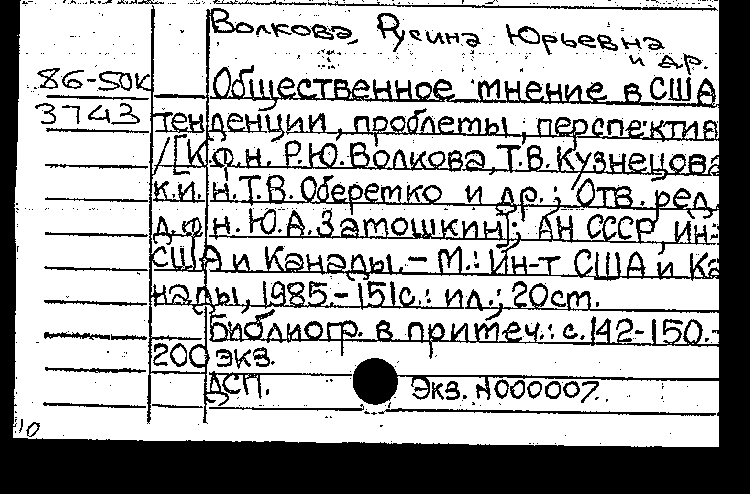 Волкова, Русина Юрьевна
и др.
86-50к Общественное мнение в США
3743 тенденции, проблемы, перспектив
/[К.ф.н. Р.Ю.Волкова, Т.В.Кузнецова
к.и.н. Т.В. Оберетко и др.; Отв. ред.
д.ф.н. Ю.А.Затошкин]; АН СССР, Ин-
США и Канады. - М.: Ин-т США и Ка
нады, 1985. - 151с.: ил.; 20ст.
Библиогр. в притеч.: с.142-150. -
200 экз.
ДСП. Экз. N000007.
10